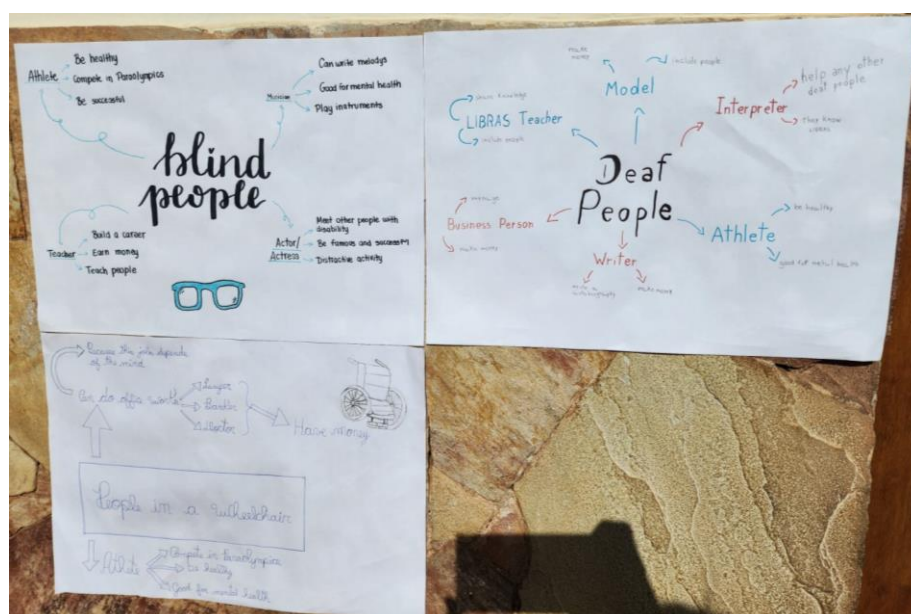 Athlete
Be healthy
Compete in Paralympics
Be successful
Musician
Can write melodys
Good for mental health
Play instruments
blind
people
Teacher
Build a career
Earn money
Teach people
Actor/
Actress
Meet other people with
disability
Be famous and successful
Distractive activity
Model
make
money
include people
Interpreter
help any other
deaf people
They know
LIBRAS
LIBRAS Teacher
share knowledge
include people
Deaf
People
Business Person
make money
Writer
write an
autobiography
make more
Athlete
be healthy
good for mental health
Because this job depends
of the mind
Can do office work
Lawyer
Banker
Doctor
Have money
People in a wheelchair
Athlete
Compete in Paralympics
Be healthy
Good for mental health